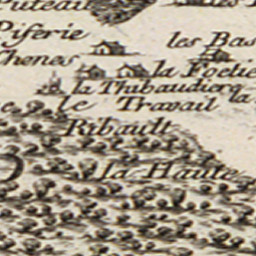 Puteau
Piserie
les Bas
Chenes
la Poetie
la Thibaudiere
le Travail
la
Ribault
la Haute